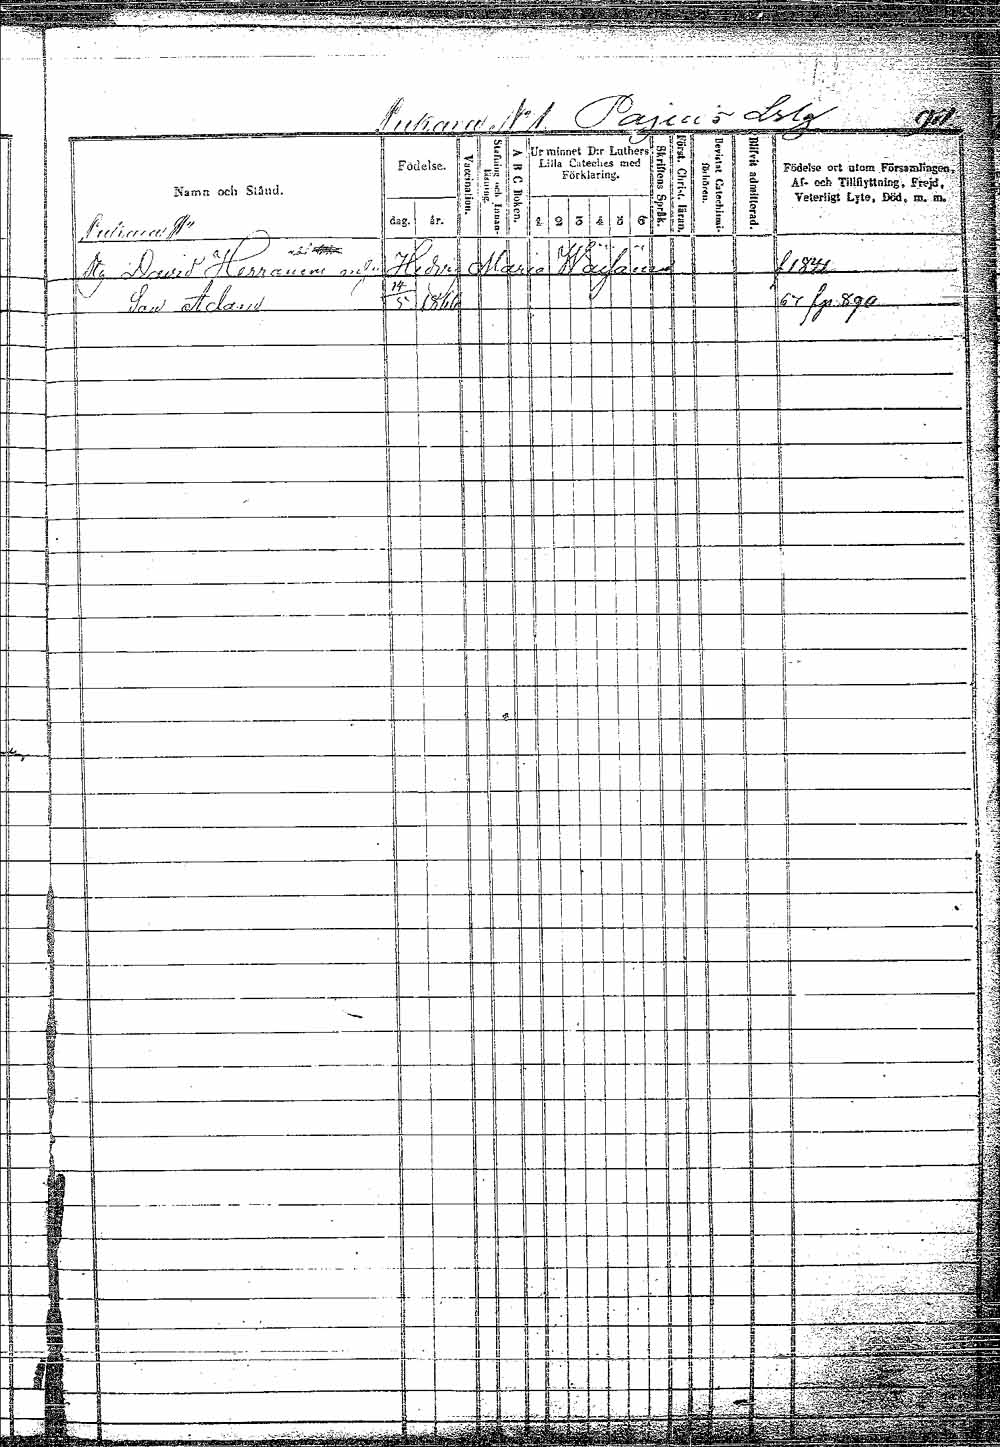 Pukara N:o 1 Pajuis Lstg
Namn och Stånd.
Födelse.
dag.
år.
Vaccination.
Stafning och Innan-läsning.
A B C Boken.
Ur minnet D:r Luthers
Lilla Cateches med
Förklaring.
1 2 3 4 5 6
Skriftens Språk.
Först. Christ. läran.
Bevistat Catechismi-
förhören.
Blifvit admitterad.
Födelse ort utom Församlingen,
Af- och Tillflyttning, Frejd,
Veterligt Lyte, Död, m. m.
David Herranens Hedvig Maria f 1841
Son Adam 14/5 67 fp. 890